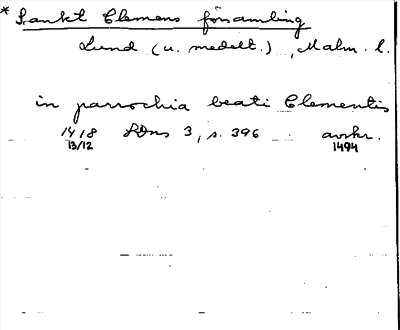 * Sankt Clemens församling
Lund (u. medelt.), Malm. l.
in parrochia beati Clementis
1418 SDns 3, s. 396 avskr.
13/12 1494